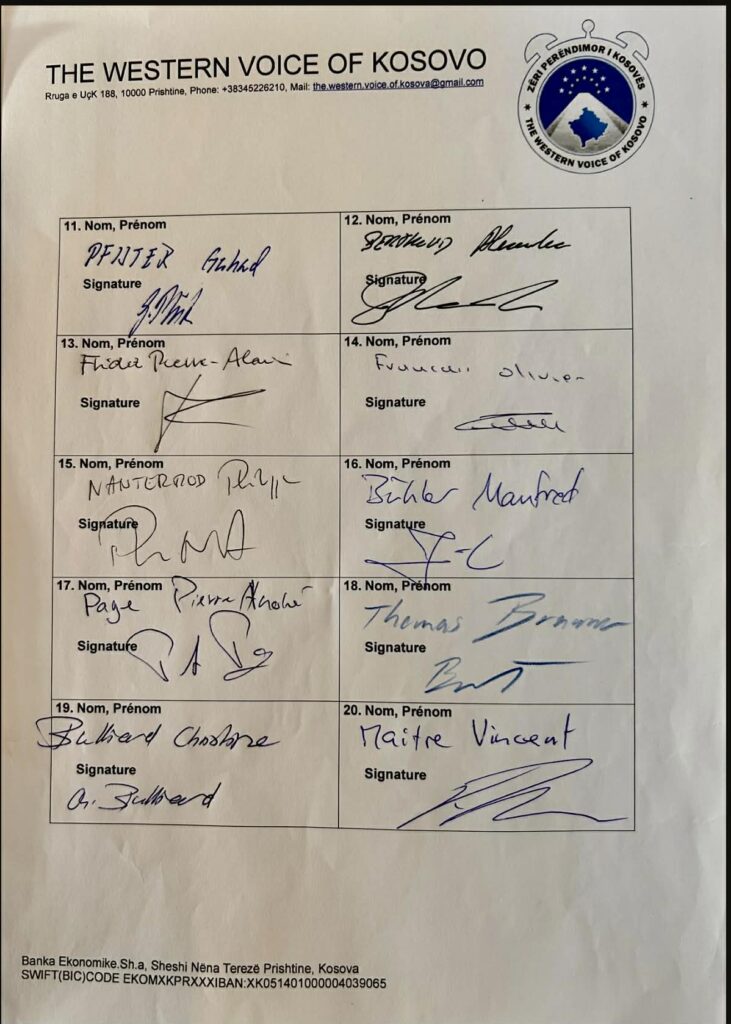 THE WESTERN VOICE OF KOSOVO
Rruga e UçK 188, 10000 Prishtine, Phone: +38345226210, Mail: the.western.voice.of.kosova@gmail.com
ZËRI PERËNDIMOR I KOSOVËS
THE WESTERN VOICE OF KOSOVO
11. Nom, Prénom
PFISTER Gerhard
Signature
12. Nom, Prénom
Signature
13. Nom, Prénom
Pierre-Alain
Signature
14. Nom, Prénom
Olivier
Signature
15. Nom, Prénom
NANTERMOD Philippe
Signature
16. Nom, Prénom
Bühler Manfred
Signature
17. Nom, Prénom
Page Pierre-André
Signature
18. Nom, Prénom
Thomas
Signature
19. Nom, Prénom
Bulliard Christine
Signature
Ch. Bulliard
20. Nom, Prénom
Maitre Vincent
Signature
Banka Ekonomike.Sh.a, Sheshi Nëna Terezë Prishtine, Kosova
SWIFT(BIC)CODE EKOMXKPRXXXIBAN:XK051401000004039065